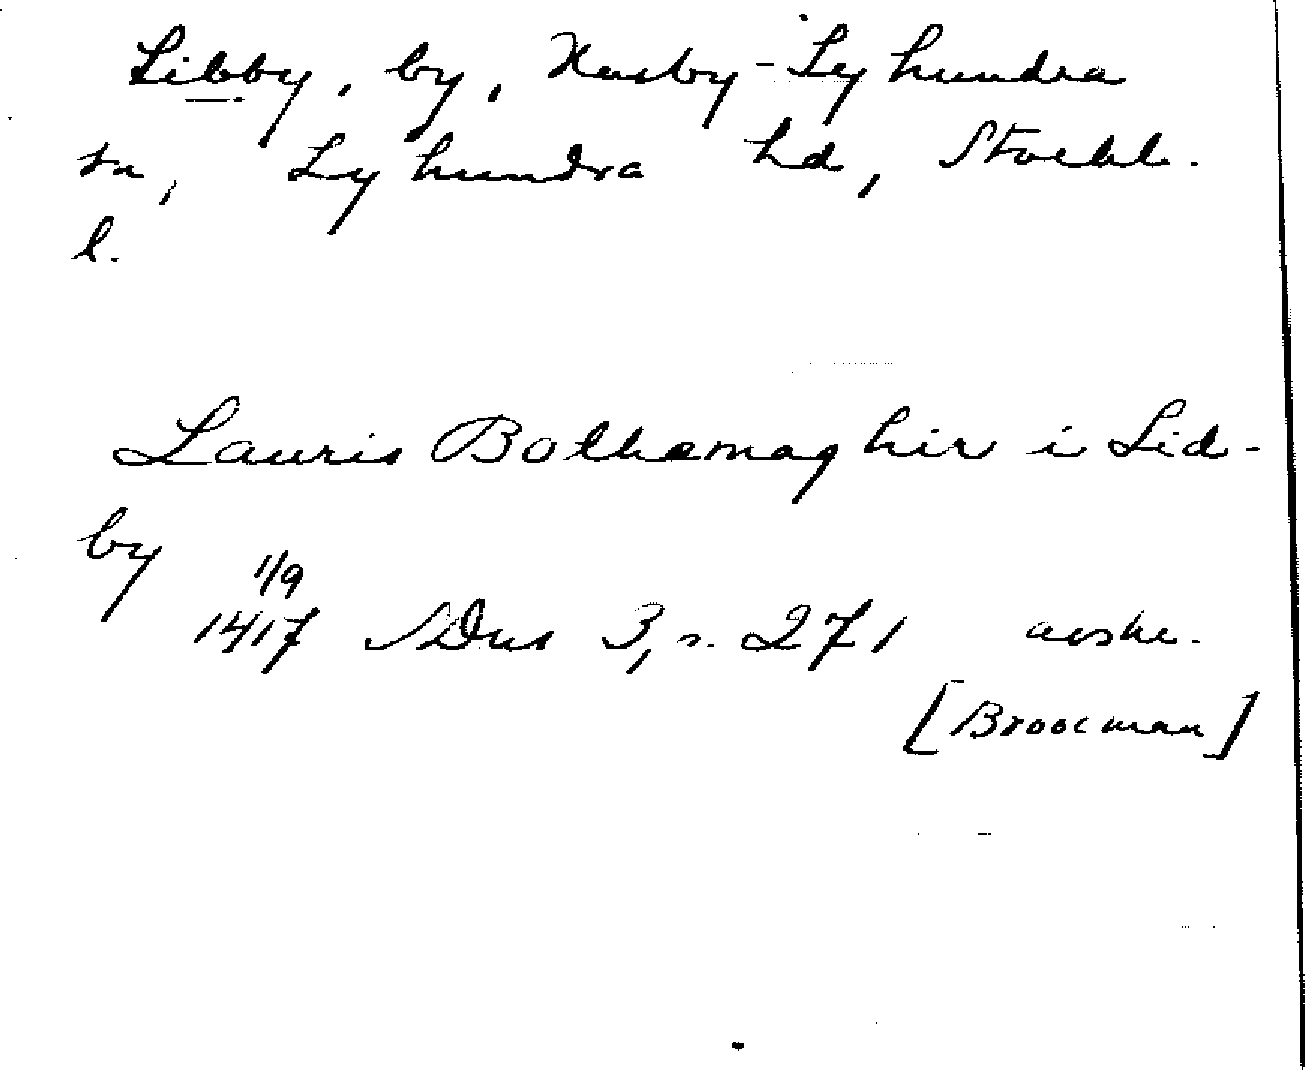 Libby, by, Husby-Lyhundra
sn, Lyhundra hd, Stockh.
l.
Lauris Bothamaghir i Lid-
by
1/9
1417 SDns 3, s. 271 avskr.
[Broocman]